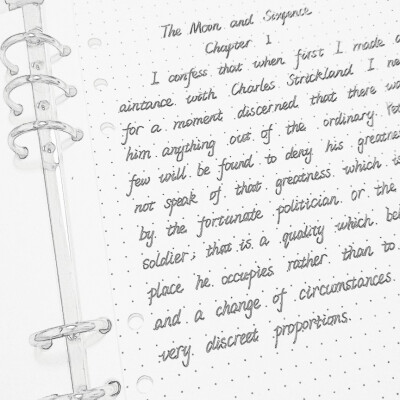 The Moon and Sixpence
Chapter 1
I confess that when first I made
aintance with Charles Strickland I
for a moment discerned that there
him anything out of the ordinary.
few will be found to deny his
not speak of that greatness which
by the fortunate politician or the
soldier; that is a quality which
place he occupies rather than to
and a change of circumstances
very discreet proportions.